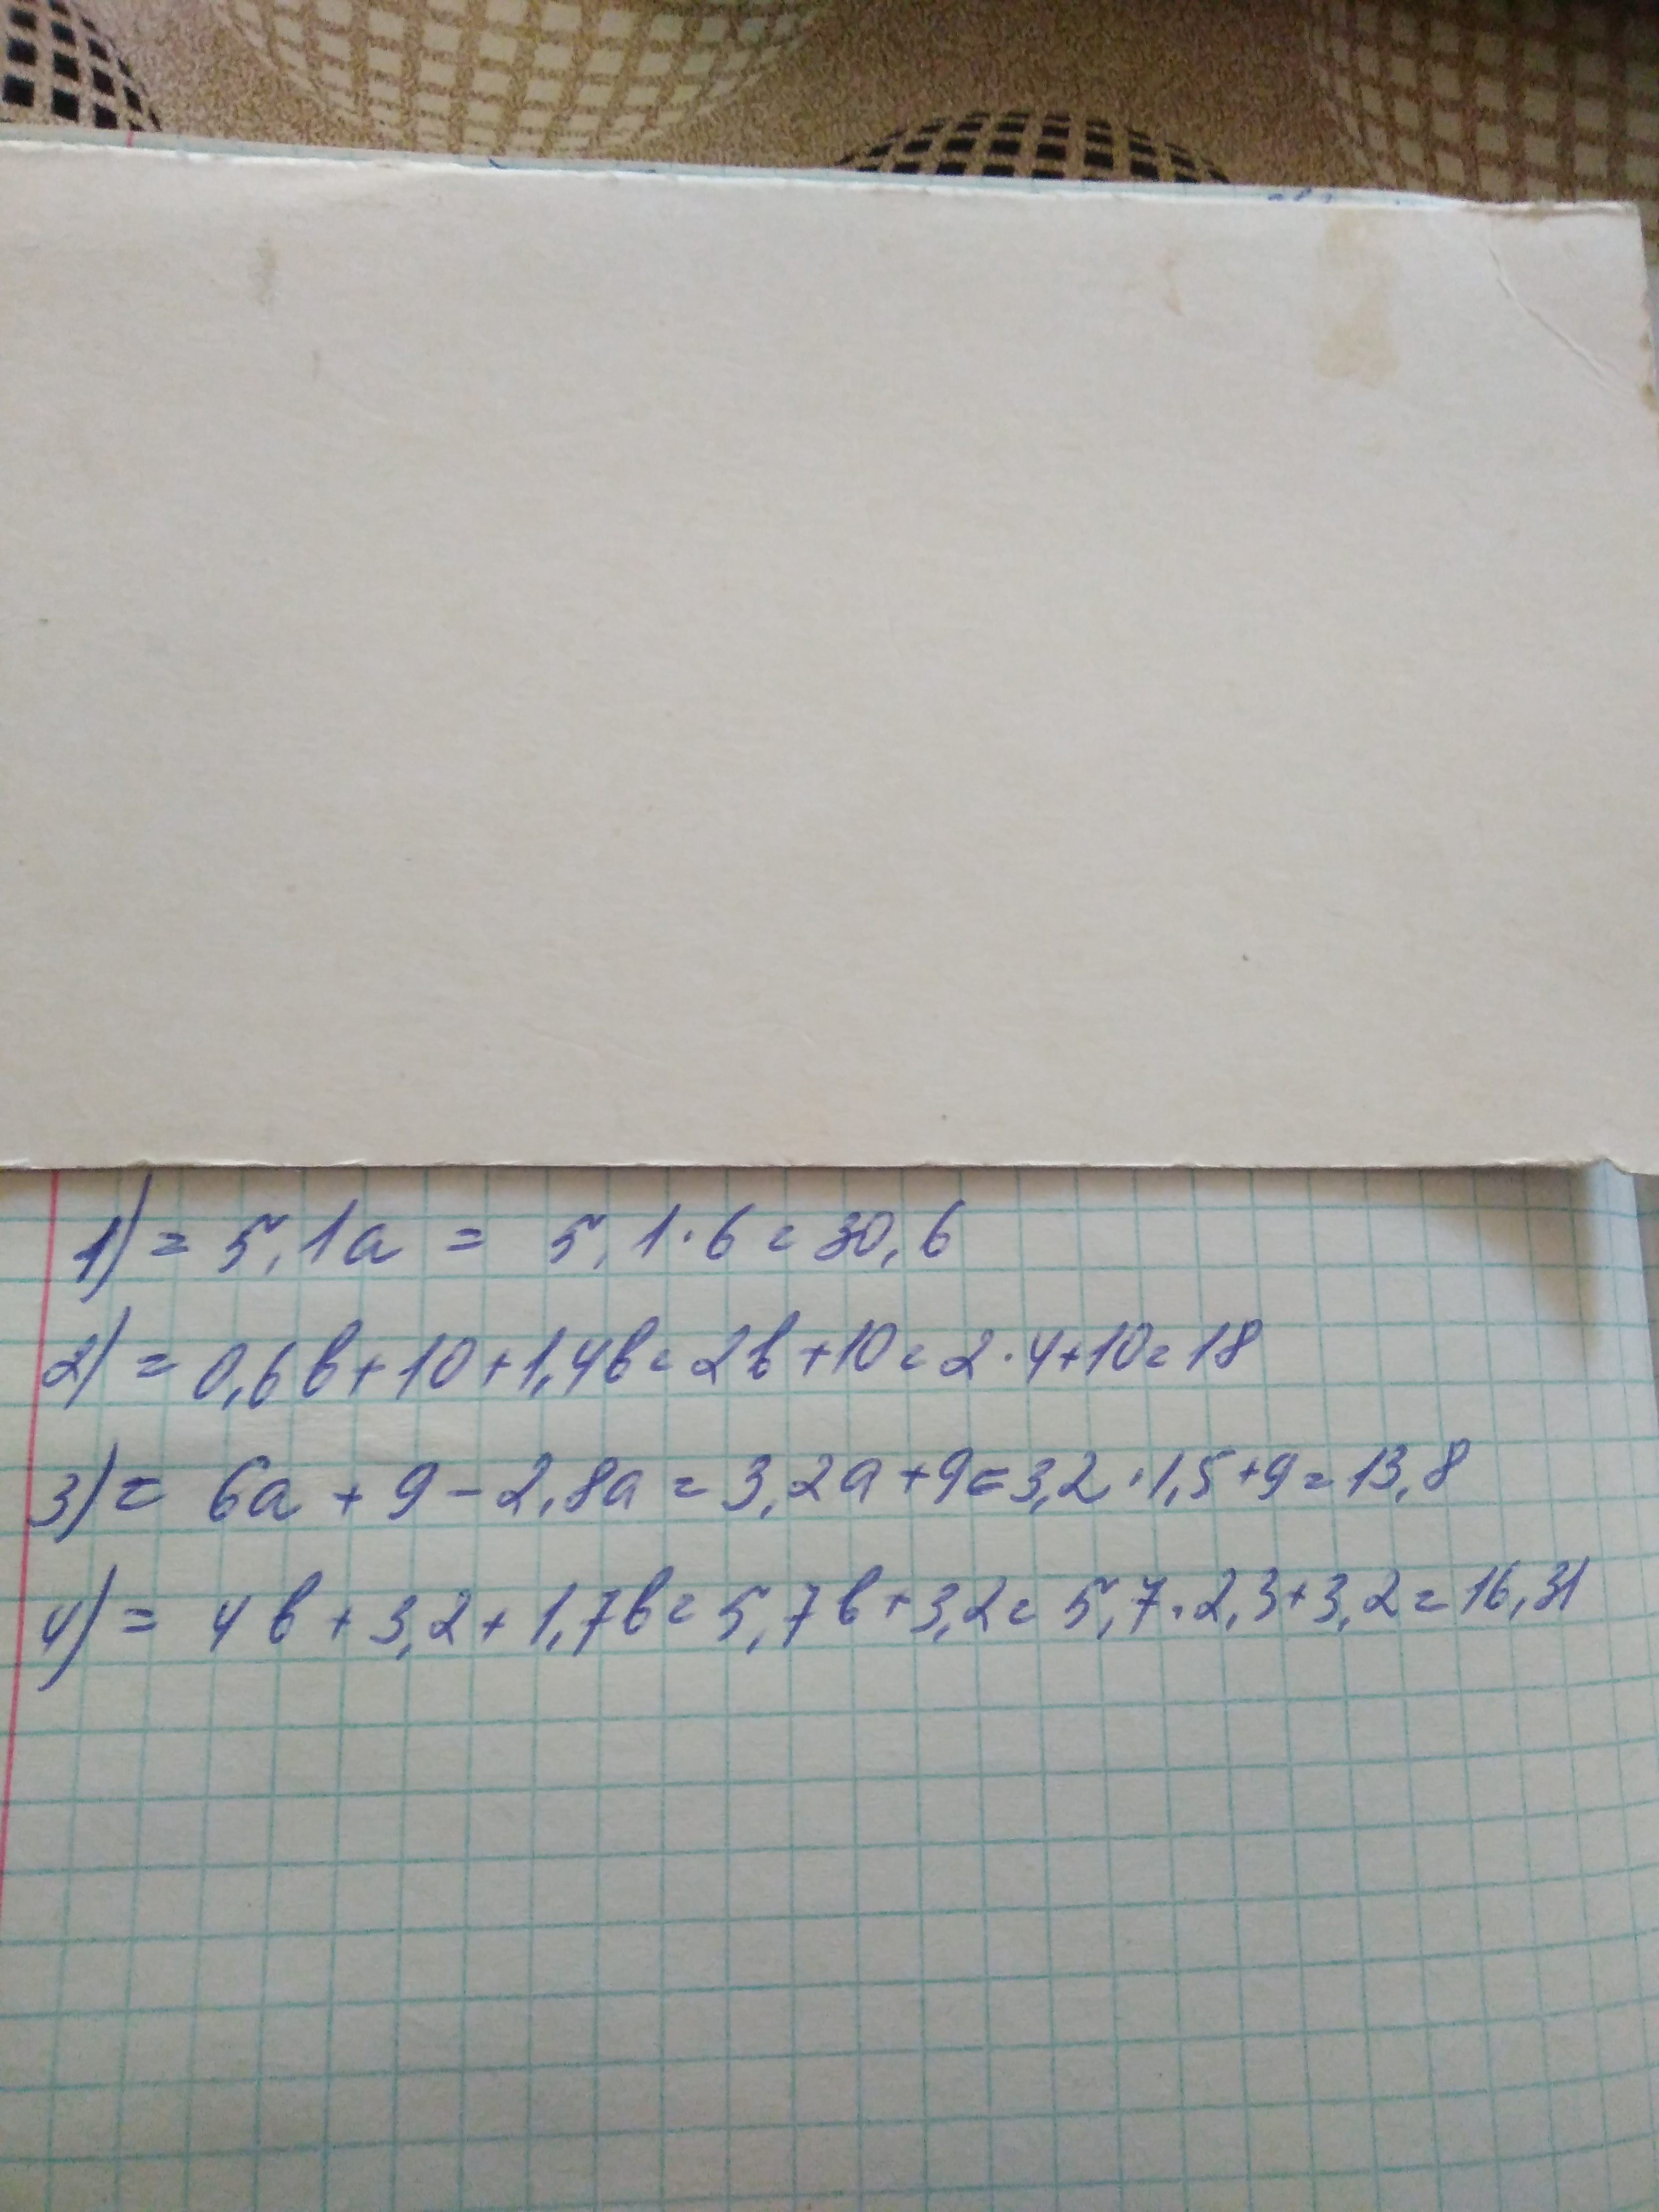 1) = 5,1a = 5,1·6 = 30,6
2) = 0,6b+10+1,4b=2b+10=2·4+10=18
3) = 6a + 9 - 2,8a = 3,2a+9=3,2·1,5+9=13,8
4) = 4b + 3,2 + 1,7b = 5,7b+3,2= 5,7·2,3+3,2=16,31